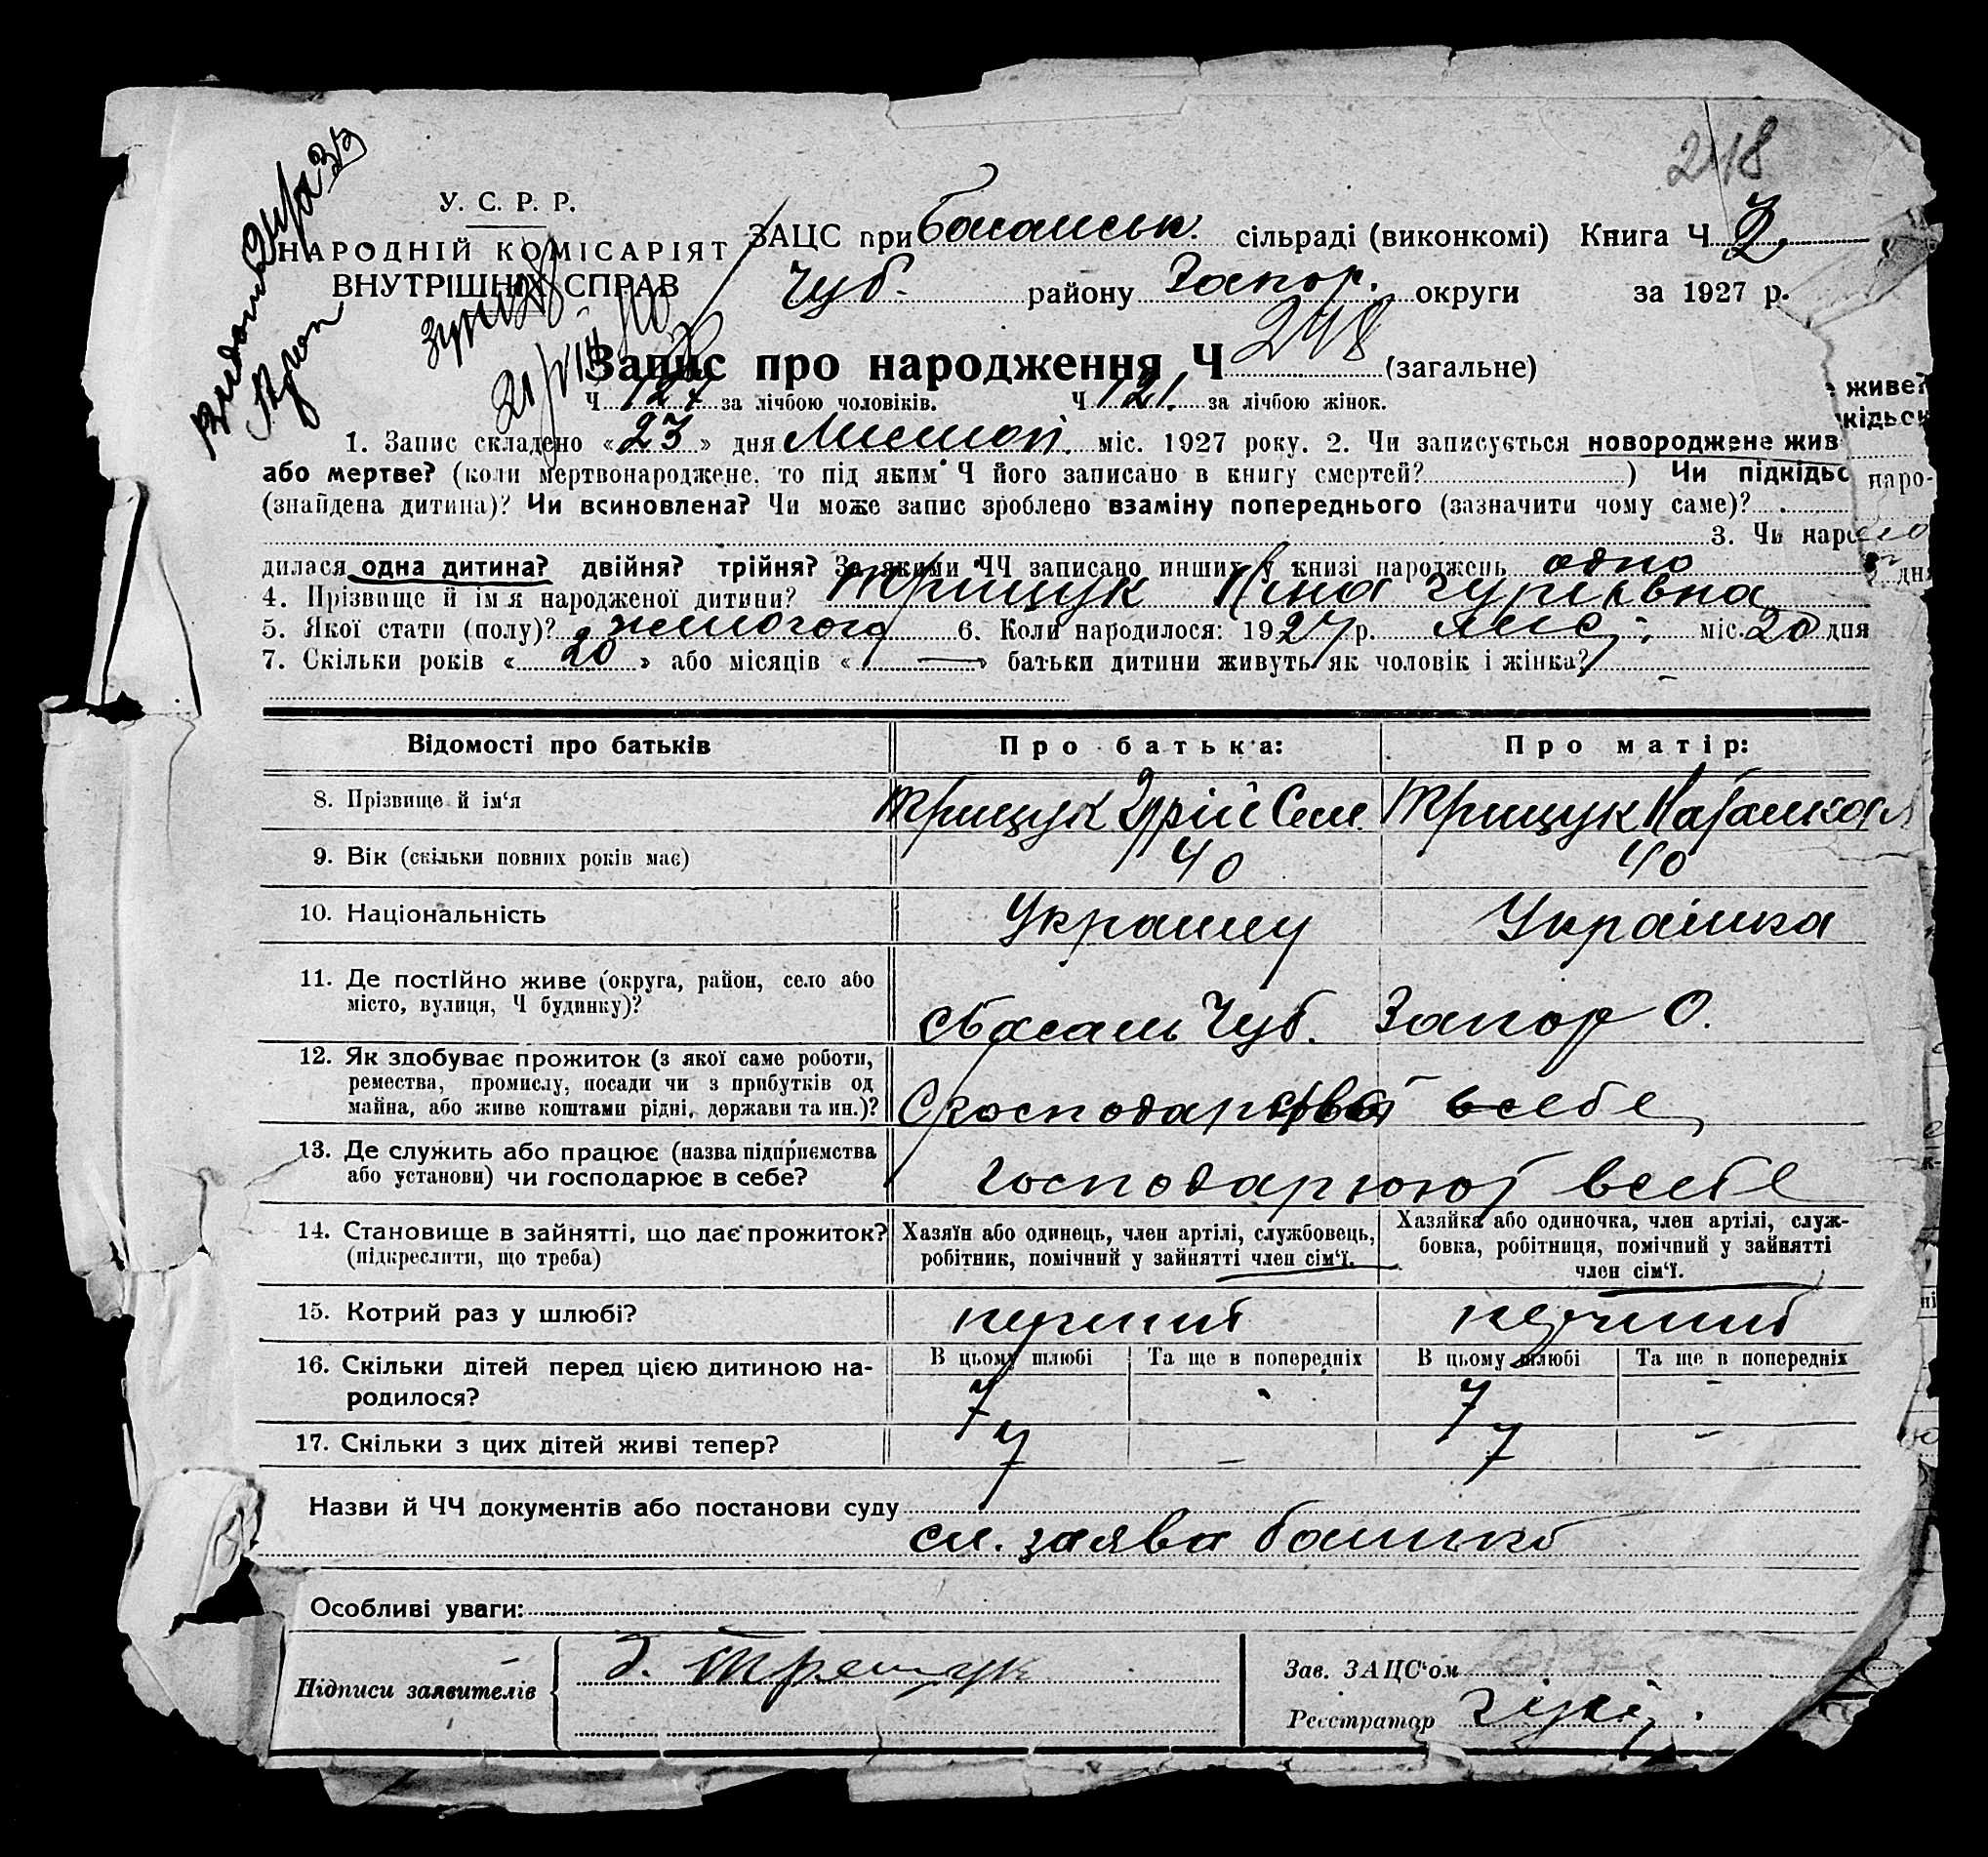 248
У. С. Р. Р.
НАРОДНІЙ КОМІСАРІЯТ
ВНУТРІШНІХ СПРАВ
ЗАЦС при Басанськ. сільраді (виконкомі) Книга Ч. 2
Чуб. району Запор. округи за 1927 р.
Запис про народження Ч 248 (загальне)
Ч. 127 за лічбою чоловіків. Ч 121. за лічбою жінок.
1. Запис складено « 23 » дня Листоп. міс. 1927 року. 2. Чи записується новороджене жив
або мертве? (коли мертвонароджене, то під яким Ч його записано в книгу смертей? ) Чи підкідьс
(знайдена дитина)? Чи всиновлена? Чи може запис зроблено взаміну попереднього (зазначити чому саме)?
3. Чи наро
дилася одна дитина? двійня? трійня? За якими ЧЧ записано инших у книзі народжень одно
4. Прізвище й ім'я народженої дитини? Трищук Ніна Гуріївна
5. Якої стати (полу)? жіночого 6. Коли народилося: 1927 р. лис. міс. 20 дня
7. Скільки років « 20 » або місяців « — » батьки дитини живуть як чоловік і жінка?
живе?
кідьск
наро-
дня
Відомості про батьків Про батька: Про матір:
8. Прізвище й ім'я Трищук Гурій Сем. Трищук Наталка
9. Вік (скільки повних років має) 40 40
10. Національність Украинц Украінка
11. Де постійно живе (округа, район, село або
місто, вулиця, Ч будинку)?
с Басань Чуб. Запор О.
12. Як здобуває прожиток (з якої саме роботи,
ремества, промислу, посади чи з прибутків од
майна, або живе коштами рідні, держави та ин.)?
Сгосподарства всебе
13. Де служить або працює (назва підприємства
або установи) чи господарює в себе?
господарюют всебе
14. Становище в зайнятті, що дає прожиток?
(підкреслити, що треба)
Хазяїн або одинець, член артілі, службовець,
робітник, помічний у зайнятті член сім'ї.
Хазяйка або одиночка, член артілі, служ-
бовка, робітниця, помічний у зайнятті
член сім'ї.
15. Котрий раз у шлюбі? перший перший
16. Скільки дітей перед цією дитиною на-
родилося?
В цьому шлюбі Та ще в попередніх В цьому шлюбі Та ще в попередніх
7 - 7 -
17. Скільки з цих дітей живі тепер? 7 - 7 -
Назви й ЧЧ документів або постанови суду
сл. заява батькі
Особливі уваги:
Підписи заявителів
Трещук
Зав. ЗАЦС'ом
Реєстратор